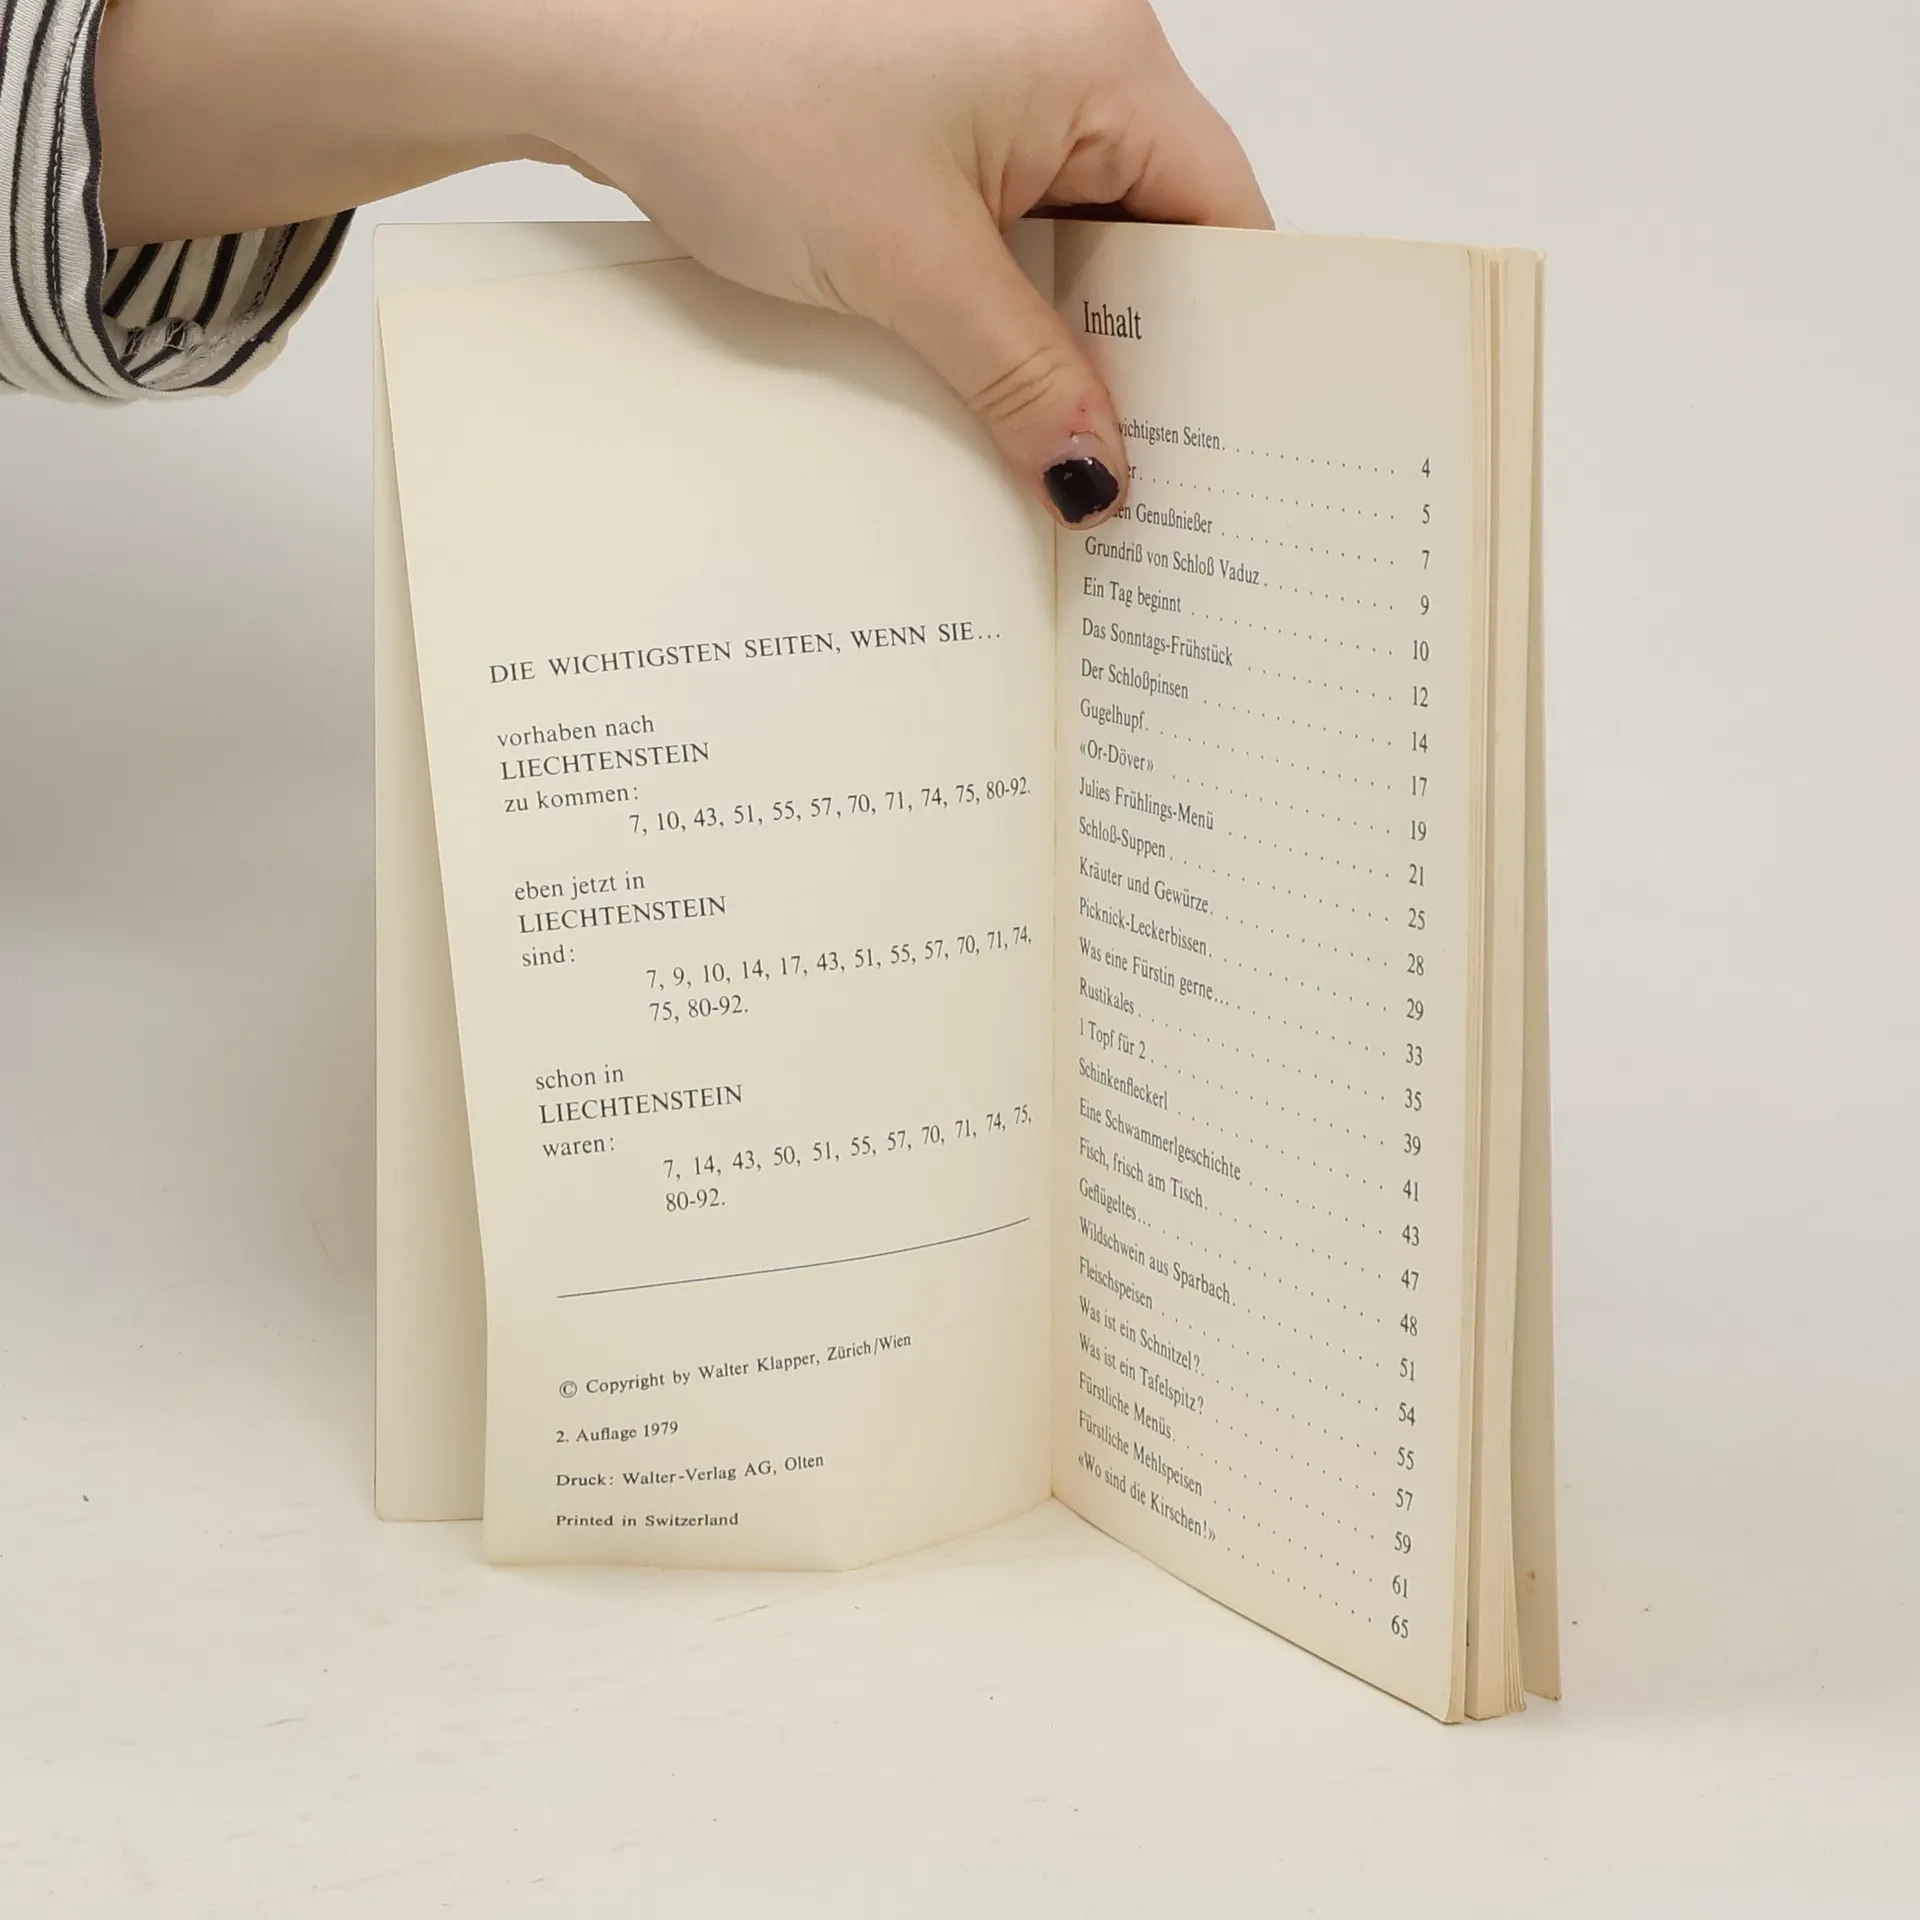 DIE WICHTIGSTEN SEITEN, WENN SIE...
vorhaben nach
LIECHTENSTEIN
zu kommen:
7, 10, 43, 51, 55, 57, 70, 71, 74, 75, 80-92.
eben jetzt in
LIECHTENSTEIN
sind:
7, 9, 10, 14, 17, 43, 51, 55, 57, 70, 71, 74,
75, 80-92.
schon in
LIECHTENSTEIN
waren:
7, 14, 43, 50, 51, 55, 57, 70, 71, 74, 75,
80-92.
© Copyright by Walter Klapper, Zürich/Wien
2. Auflage 1979
Druck: Walter-Verlag AG, Olten
Printed in Switzerland
Inhalt
wichtigsten Seiten. . . . . . . . . . . . 4
. . . . . . . . . . . . . . . . 5
Genußnießer . . . . . . . . . . . . 7
Grundriß von Schloß Vaduz . . . . . . . . . 9
Ein Tag beginnt . . . . . . . . . . . . . 10
Das Sonntags-Frühstück . . . . . . . . . . 12
Der Schloßpinsen . . . . . . . . . . . . 14
Gugelhupf. . . . . . . . . . . . . . . . 17
«Or-Döver» . . . . . . . . . . . . . . 19
Julies Frühlings-Menü . . . . . . . . . . . 21
Schloß-Suppen . . . . . . . . . . . . . . 25
Kräuter und Gewürze. . . . . . . . . . . . 28
Picknick-Leckerbissen. . . . . . . . . . . . 29
Was eine Fürstin gerne... . . . . . . . . . . 33
Rustikales . . . . . . . . . . . . . . . . 35
1 Topf für 2 . . . . . . . . . . . . . . . 39
Schinkenfleckerl . . . . . . . . . . . . . 41
Eine Schwammerlgeschichte . . . . . . . . . 43
Fisch, frisch am Tisch. . . . . . . . . . . . 47
Geflügeltes... . . . . . . . . . . . . . . 48
Wildschwein aus Sparbach. . . . . . . . . . 51
Fleischspeisen . . . . . . . . . . . . . . 54
Was ist ein Schnitzel?. . . . . . . . . . . . 55
Was ist ein Tafelspitz? . . . . . . . . . . . 57
Fürstliche Menüs. . . . . . . . . . . . . . 59
Fürstliche Mehlspeisen . . . . . . . . . . . 61
«Wo sind die Kirschen!» . . . . . . . . . . 65